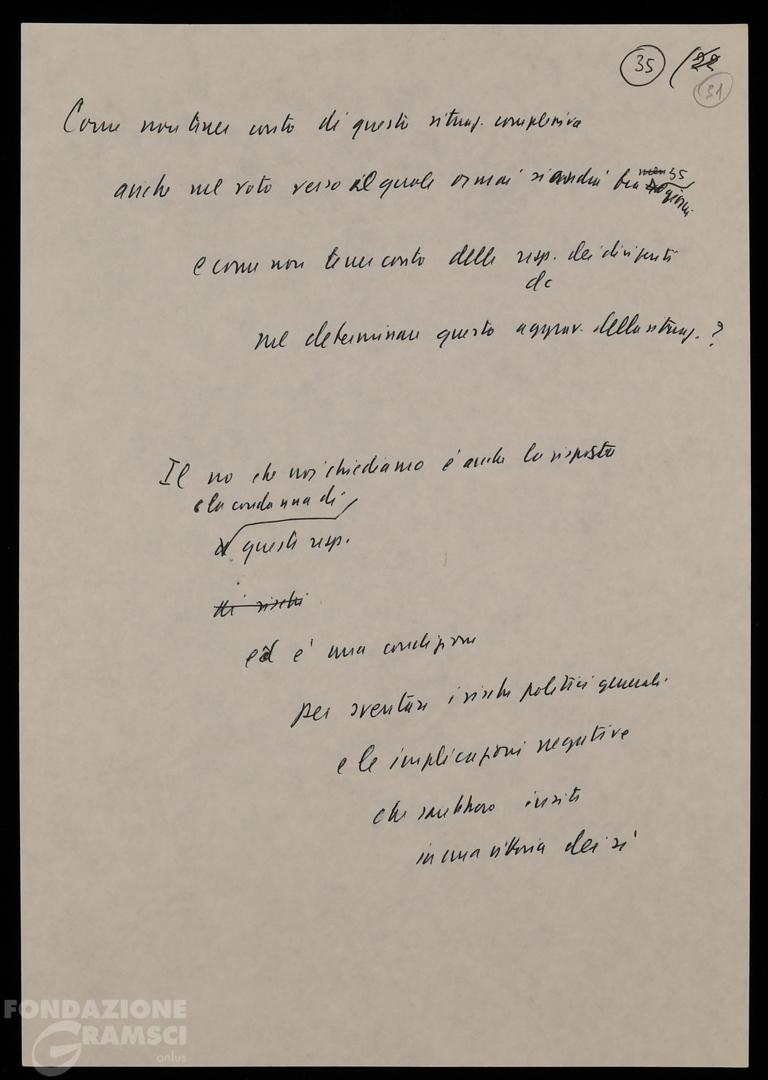 35 (22
31
Come non tener conto di questa situaz. complessiva
anche nel voto verso il quale ormai si andrà fra 35
giorni
e come non tener conto delle resp. dei dirigenti
dc
nel determinare questo aggrav. della situaz.?
Il no che noi chiediamo è anche la risposta
e la condanna di
a queste resp.
di rischi
ed è una condizione
per sventare i rischi politici generali
e le implicazioni negative
che sarebbero insite
in una vittoria dei sì
FONDAZIONE
GRAMSCI
onlus